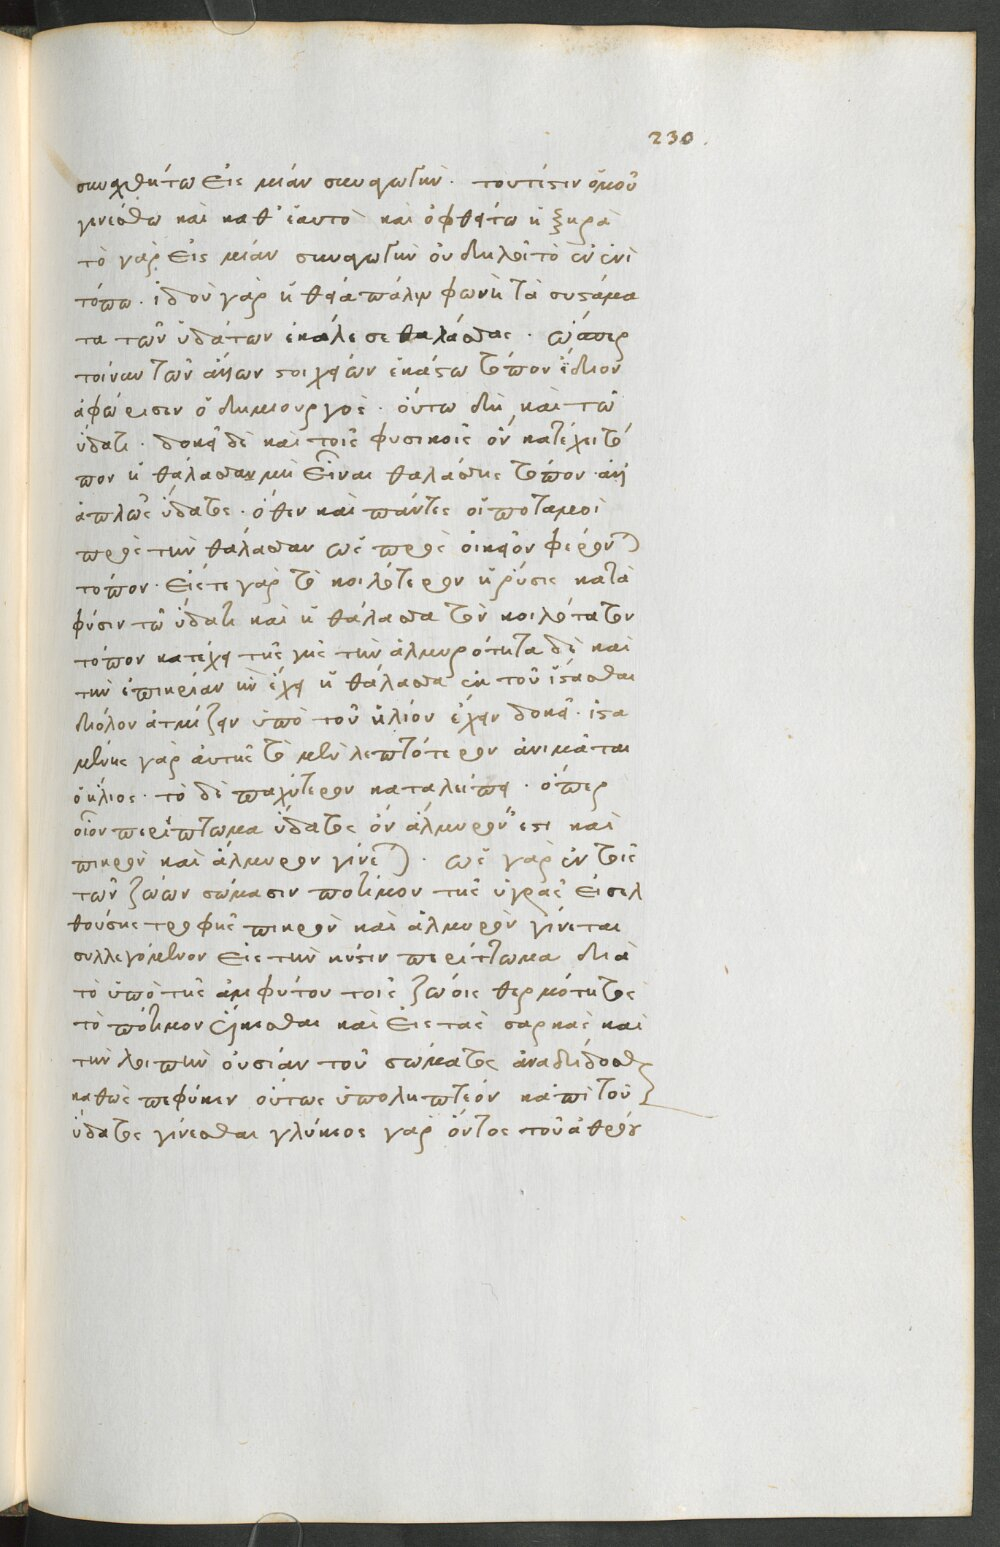 230.
συναχθήτω εἰς μίαν συναγωγὴν. τουτέστιν ὁμοῦ
γινέσθω καὶ καθ' ἑαυτὸ καὶ ὀφθήτω ἡ ξηρὰ
τὸ γὰρ εἰς μίαν συναγωγὴν οὐ δηλοῖ τὸ ἐν ἑνὶ
τόπω. ἰδοὺ γὰρ ἡ θεία πάλιν φωνὴ τὰ συστάμα
τα τῶν ὑδάτων ἐκάλεσε θαλάσσας. ὥσπερ
τοίνυν τῶν ἄλλων στοιχείων ἑκάστω τόπον ἴδιον
ἀφώρισεν ὁ δημιουργὸς. οὕτω δὴ καὶ τῶ
ὕδατι. δοκεῖ δὲ καὶ τοῖς φυσικοῖς ὃν κατέχει τό
πον ἡ θάλασσαν μὴ εἶναι θαλάσσης τόπον ἀλλ'
ἁπλῶς ὕδατος. ὅθεν καὶ πάντες οἱ ποταμοὶ
πρὸς τὴν θάλασσαν ὡς πρὸς οἰκεῖον φέρονται
τόπον. εἰς τε γὰρ τὸ κοιλότερον ἡ ῥύσις κατὰ
φύσιν τῶ ὕδατι καὶ ἡ θάλασσα τὸν κοιλότατον
τόπον κατέχει τῆς γῆς τὴν ἁλμυρότητα δὲ καὶ
τὴν ἐπικρίαν ἣν ἔχει ἡ θάλασσα ἐκ τοῦ ἵστασθαι
διόλου ἀτμίζειν ὑπὸ τοῦ ἡλίου ἔχειν δοκεῖ. ἱστα
μένης γὰρ αὐτῆς τὸ μὲν λεπτότερον ἀνιμᾶται
ὁ ἥλιος. τὸ δὲ παχύτερον καταλείπει. ὅπερ
οἷον περίττωμα ὕδατος ὂν ἁλμυρὸν ἐστι καὶ
πικρὸν καὶ ἁλμυρὸν γίνεται. ὡς γὰρ ἐν τοῖς
τῶν ζώων σώμασιν ποτίμου τῆς ὑγρᾶς εἰσελ
θούσης τροφῆς πικρὸν καὶ ἁλμυρὸν γίνεται
συλλεγόμενον εἰς τὴν κύστιν περίττωμα διὰ
τὸ ὑπὸ τῆς ἐμφύτου τοῖς ζώοις θερμότητος
τὸ πότιμον ἕλκεσθαι καὶ εἰς τὰς σάρκας καὶ
τὴν λοιπὴν οὐσίαν τοῦ σώματος ἀναδίδοσθαι
καθὼς πέφυκεν οὕτως ὑποληπτέον κἀπὶ τοῦ
ὕδατος γίνεσθαι γλύκεος γὰρ ὄντος τοῦ ἀθρόου